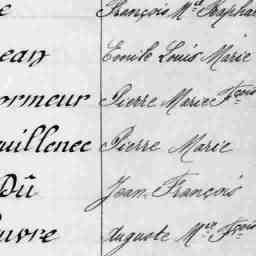 e François Mᵉ Raphaë
ean Emile Louis Marie
ormeur Pierre Marie Fçois
uillenec Pierre Marie
Dû Jean-François
uvre Auguste Mⁱᵉ Fçois